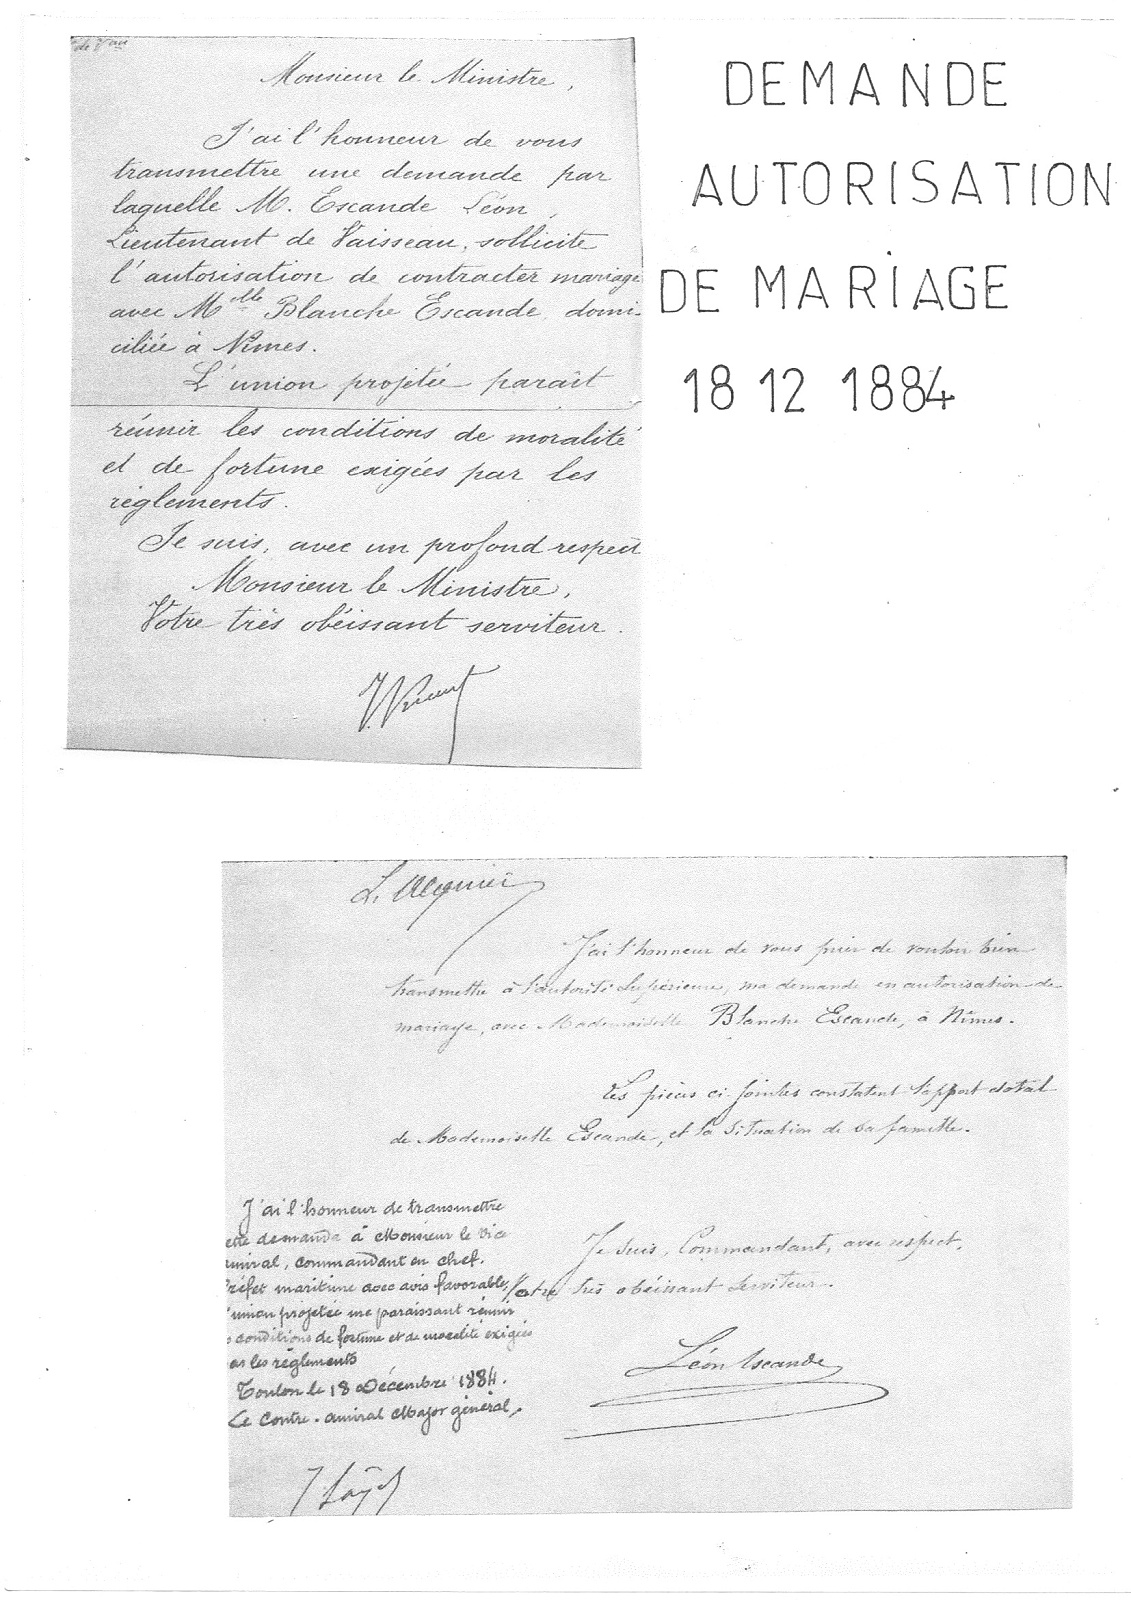 DEMANDE
AUTORISATION
DE MARIAGE
18 12 1884
de Vau
Monsieur le Ministre,
J'ai l'honneur de vous
transmettre une demande par
laquelle M. Escande Léon,
Lieutenant de Vaisseau, sollicite
l'autorisation de contracter mariage
avec Melle Blanche Escande, domi-
ciliée à Nîmes.
L'union projetée paraît
réunir les conditions de moralité
et de fortune exigées par les
règlements.
Je suis, avec un profond respect
Monsieur le Ministre,
Votre très obéissant serviteur.
J'ai l'honneur de vous prier de vouloir bien
transmettre à l'autorité Supérieure, ma demande en autorisation de
mariage, avec Mademoiselle Blanche Escande, à Nîmes.
Les pièces ci jointes constatent l'apport dotal
de Mademoiselle Escande, et la situation de sa famille.
Je suis, Commandant, avec respect,
Votre très obéissant serviteur.
Léon Escande
J'ai l'honneur de transmettre
ette demande à Monsieur le Vice
amiral, commandant en chef.
réfet maritime avec avis favorable,
l'union projetée me paraissant réunir
s conditions de fortune et de moralité exigées
ar les règlements
Toulon le 18 Décembre 1884.
Le Contre-amiral Major général,